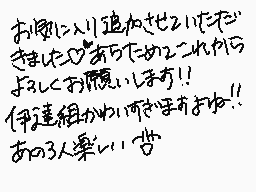 お気に入り追加させていただ
きました♡あらためてこれから
よろしくお願いします!!
伊達組かわいすぎますよね!!
あの3人楽しい